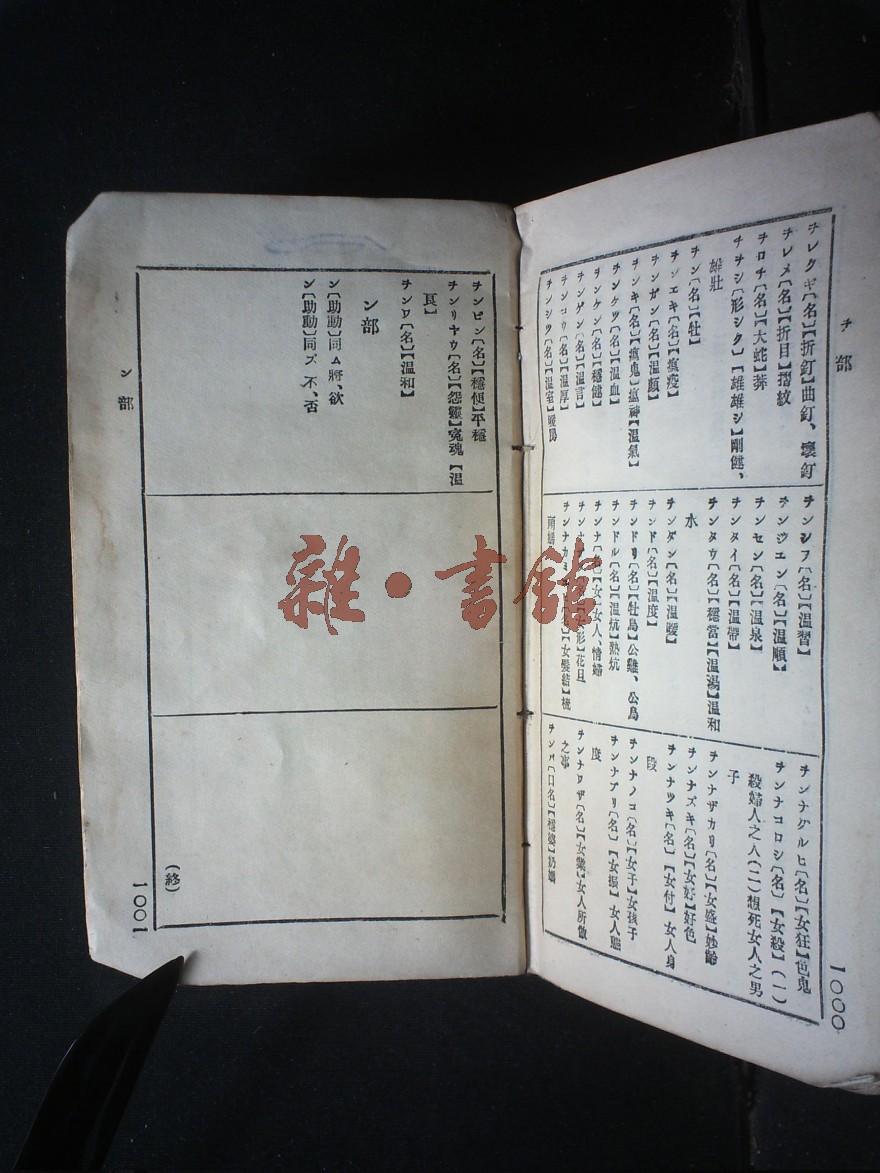 ヲ部
ヲレクギ〔名〕【折釘】曲釘、壞釘
ヲレメ〔名〕【折目】摺紋
ヲロチ〔名〕【大蛇】蟒
ヲヲシ〔形シク〕【雄雄シ】剛健、
雄壯
ヲン〔名〕【牡】
ヲンエキ〔名〕【瘟疫】
ヲンガン〔名〕【温顏】
ヲンキ〔名〕【瘟鬼】瘟神【温氣】
ヲンケツ〔名〕【温血】
ヲンケン〔名〕【穩健】
ヲンゲン〔名〕【温言】
ヲンコウ〔名〕【温厚】
ヲンシツ〔名〕【温室】暖
ヲンシフ〔名〕【温習】
ヲンジユン〔名〕【温順】
ヲンセン〔名〕【温泉】
ヲンタイ〔名〕【温帶】
ヲンタウ〔名〕【穩當】【温湯】温和
水
ヲンダン〔名〕【温暖】
ヲンド〔名〕【温度】
ヲンドリ〔名〕【牡鳥】公雞、公鳥
ヲンドル〔名〕【温炕】熱炕
ヲンナ【女】女人、情婦
形】花旦
ヲンナカミ【女髮結】梳
ヲンナグルヒ〔名〕【女狂】色鬼
ヲンナコロシ〔名〕【女殺】(一)
殺婦人之人(二)想死女人之男
子
ヲンナザカリ〔名〕【女盛】妙齡
ヲンナズキ〔名〕【女好】好色
ヲンナツキ〔名〕【女付】女人身
段
ヲンナノコ〔名〕【女子】女孩子
ヲンナブリ〔名〕【女振】女人態
度
ヲンナワザ〔名〕【女業】女人所做
之事
ヲンバ〔口名〕【穩婆】奶媽
1000
ヲンビン〔名〕【穩便】平穩
ヲンリヤウ〔名〕【怨靈】寃魂【温
良】
ヲンワ〔名〕【温和】
ン部
ン〔助動〕同ム將、欲
ン〔助動〕同ズ不、否
(終)
ン部
1001
雜·書館